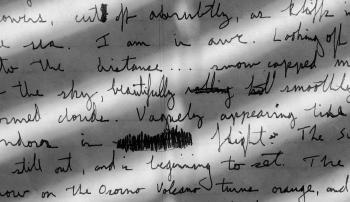 cut off abruptly, as cliffs in
sea. I am in awe. Looking off
to the distance... snow capped m
the sky, beautifully smoothly
ormed clouds. Vaguely appearing like
in flight. The su
still out, and is beginning to set. The
now on the Osorno Volcano turns orange, and